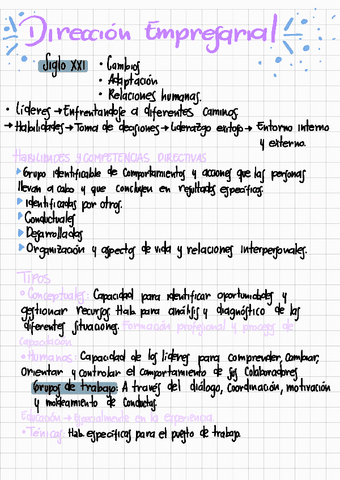 Dirección Empresarial
Siglo XXI • Cambios
• Adaptación
• Relaciones humanas.
• Líderes → Enfrentandose a diferentes caminos
→ Habilidades → Toma de decisiones → Liderazgo exitoso → Entorno interno
y externo.
HABILIDADES Y COMPETENCIAS DIRECTIVAS
Grupo identificable de comportamientos y acciones que las personas
llevan a cabo y que concluyen en resultados específicos.
Identificadas por otros.
Conductuales
Desarrolladas
Organización y aspectos de vida y relaciones interpersonales.
TIPOS
• Conceptuales: Capacidad para identificar oportunidades y
gestionar recursos Hab para análisis y diagnóstico de las
diferentes situaciones. Formación profesional y proceso de
capacitación
• Humanas: Capacidad de los líderes para comprender, cambiar,
orientar y controlar el comportamiento de sus colaboradores
Grupos de trabajo: A través del diálogo, coordinación, motivación
y moldeamiento de conductas.
Educación → Especialmente en la experiencia
• Técnicas: Hab específicas para el puesto de trabajo.